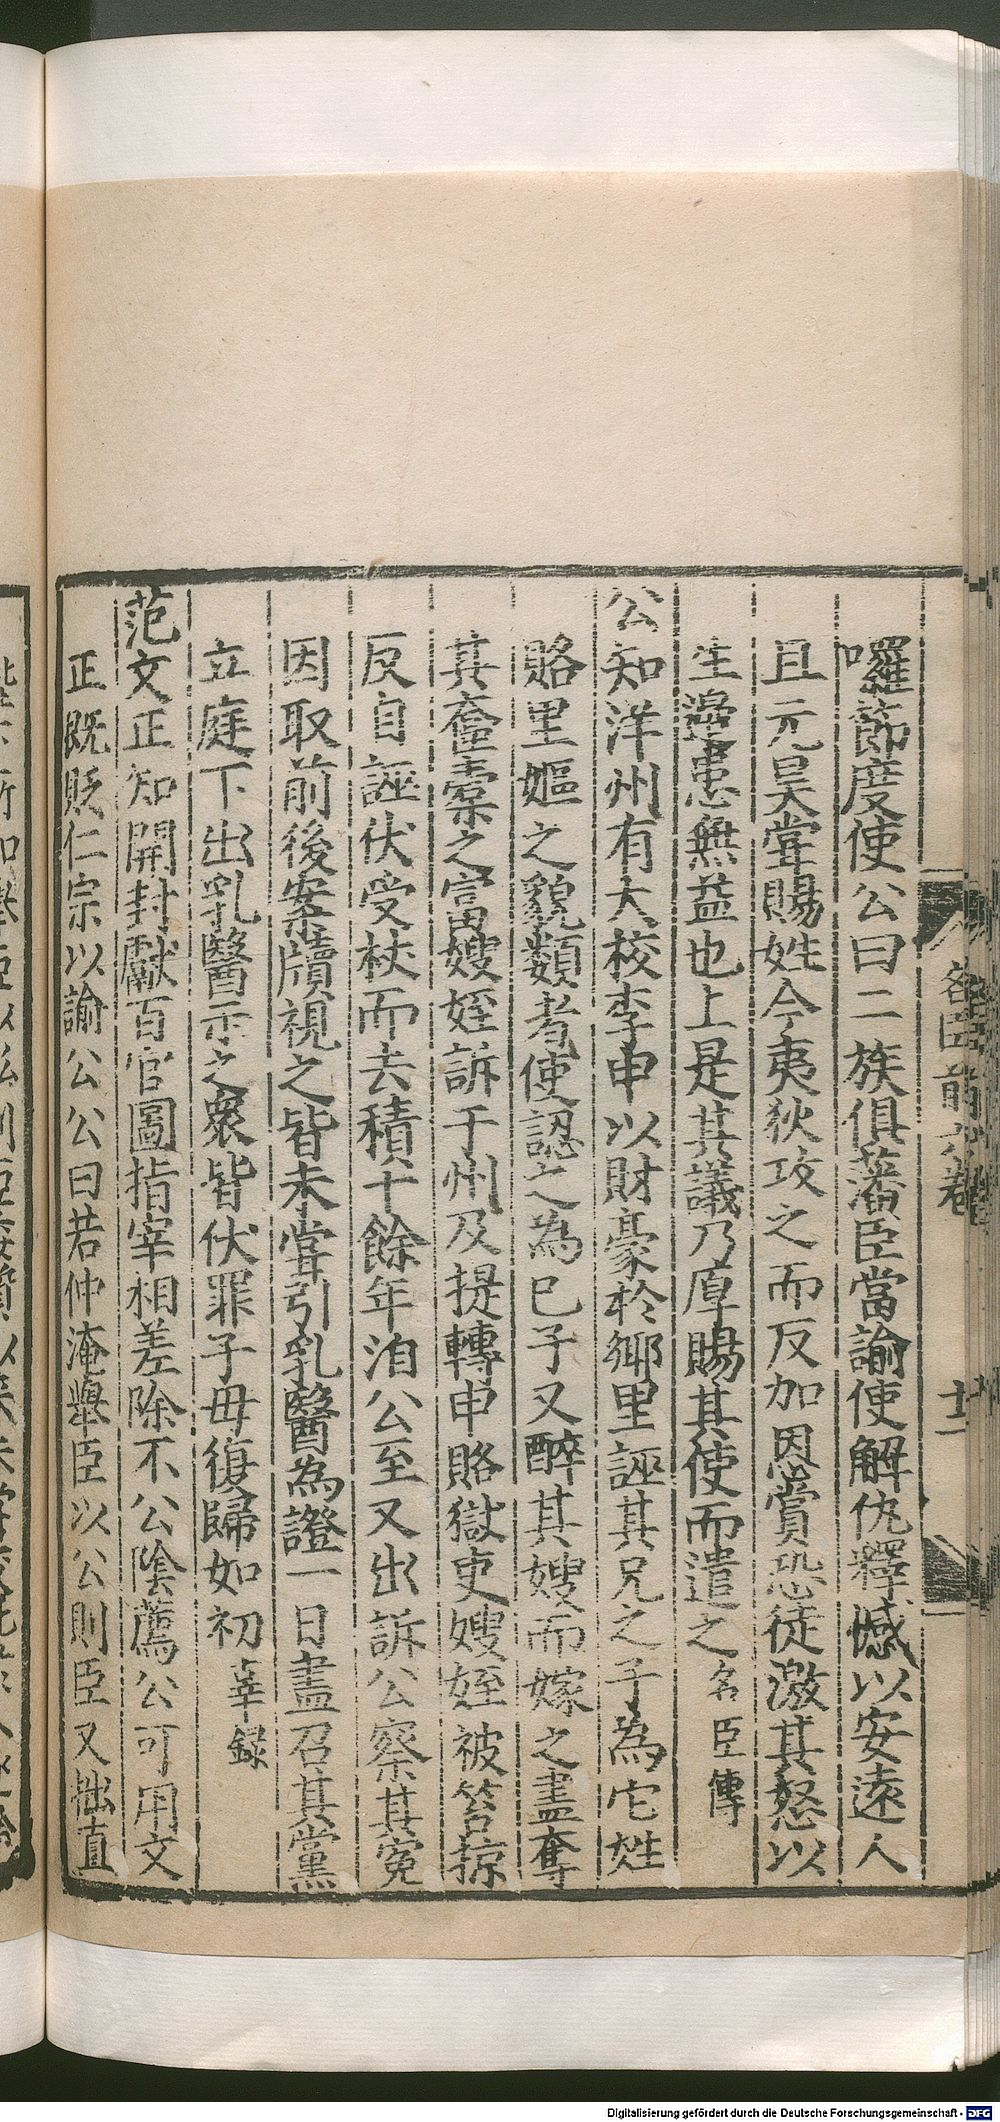 囉節度使公曰二族俱藩臣當諭使解仇釋憾以安遠人
且元昊甞賜姓今夷狄攻之而反加恩賞恐徒激其怒以
生邊患無益也上是其議乃厚賜其使而遣之 名臣傳
公知洋州有大校李申以財豪於鄉里誣其兄之子為它姓
賂里嫗之貌類者使認之為己子又醉其嫂而嫁之盡奪
其奩槖之富嫂姪訴于州及提轉申賂獄吏嫂姪被笞掠
反自誣伏受杖而去積十餘年洎公至又出訴公察其寃
因取前後案牘視之皆未甞引乳醫為證一日盡召其黨
立庭下出乳醫示之衆皆伏罪子母復歸如初
范文正知開封獻百官圖指宰相差除不公隂薦公可用文
正既貶仁宗以諭公公曰若仲淹舉臣以公則臣又拙直
名臣前六卷
十二
Digitalisierung gefördert durch die Deutsche Forschungsgemeinschaft - DFG